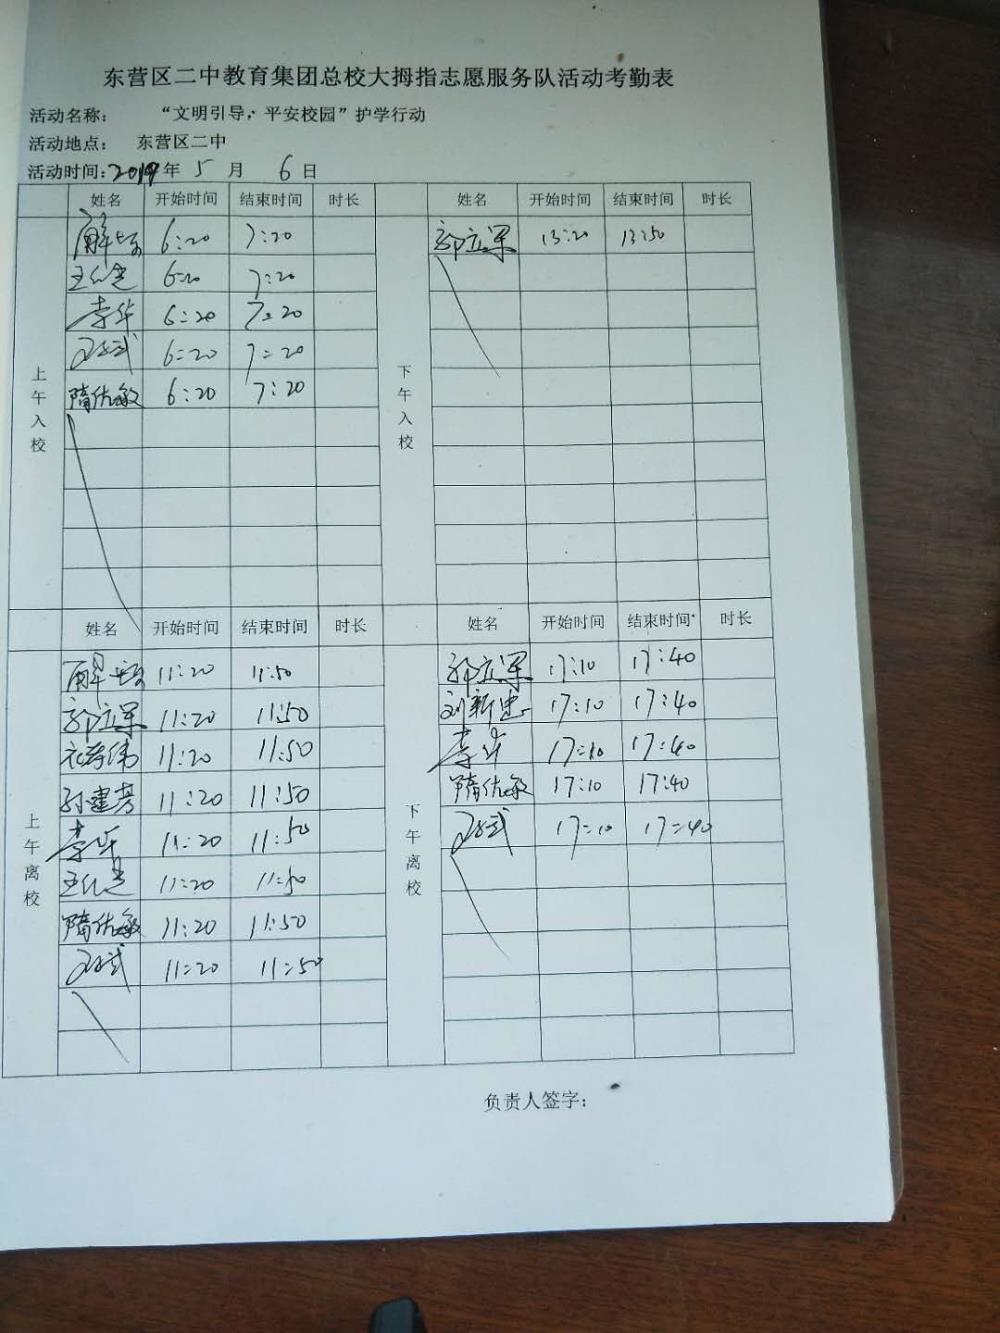 东营区二中教育集团总校大拇指志愿服务队活动考勤表
活动名称： “文明引导，平安校园”护学行动
活动地点： 东营区二中
活动时间：2019年 5 月 6 日
姓名 开始时间 结束时间 时长 姓名 开始时间 结束时间 时长
上午入校
6:20 7:20
6:20 7:20
李华 6:20 7:20
6:20 7:20
隋优敏 6:20 7:20
下午入校
郭立军 13:20 13:50
姓名 开始时间 结束时间 时长 姓名 开始时间 结束时间 时长
上午离校
11:20 11:50
郭立军 11:20 11:50
11:20 11:50
孙建芳 11:20 11:50
李华 11:20 11:50
11:20 11:50
隋优敏 11:20 11:50
11:20 11:50
下午离校
郭立军 17:10 17:40
刘新忠 17:10 17:40
李华 17:10 17:40
隋优敏 17:10 17:40
17:10 17:40
负责人签字：